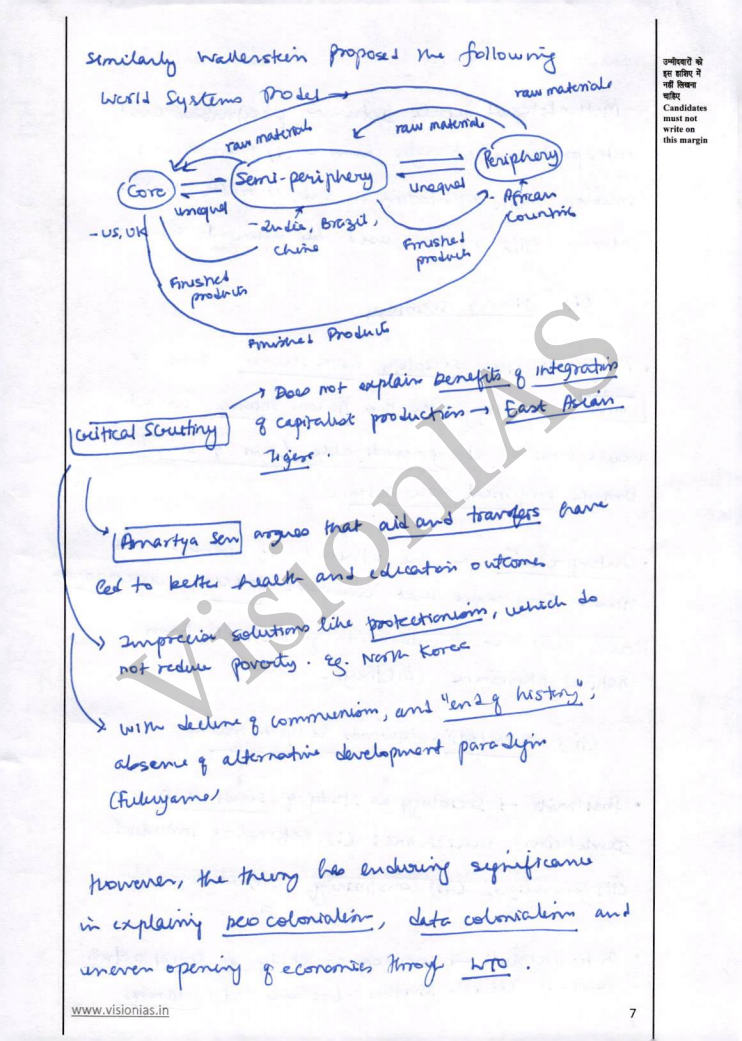 Similarly Wallerstein proposed the following
World Systems Model →
raw materials
raw materials
raw materials
Core
Semi-periphery
Periphery
unequal
unequal
- US, UK
- India, Brazil,
China
- African
Countries
Finished
products
Finished
products
Finished Products
Critical Scrutiny
→ Does not explain benefits of integration
of capitalist production → East Asian
Tigers.
Amartya Sen argues that aid and transfers have
led to better health and education outcomes
→ Imprecise solutions like protectionism, which do
not reduce poverty. Eg. North Korea
→ with decline of communism, and "end of history",
absence of alternative development paradigm
(Fukuyama)
However, the theory has enduring significance
in explaining neo colonialism, data colonialism and
uneven opening of economies through WTO.
उम्मीदवारों को
इस हाशिए में
नहीं लिखना
चाहिए
Candidates
must not
write on
this margin
VisionIAS
www.visionias.in
7